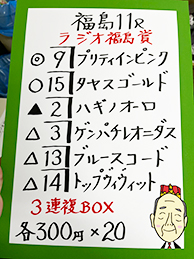 福島11R
ラジオ福島賞
◎ 9 プリティインピンク
○ 15 タヤスゴールド
▲ 2 ハギノオーロ
△ 3 ゲンパチレオニダス
△ 13 ブルースコード
△ 14 トップヴィヴィット
3連複BOX
各300円×20